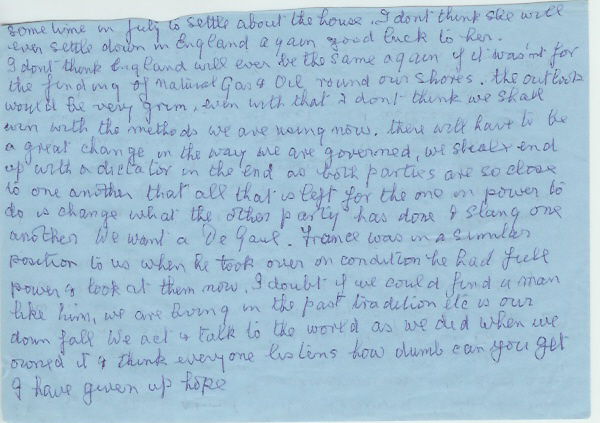 sometime in July to settle about the house. I dont think she will
ever settle down in England again good luck to her.
I dont think England will ever be the same again if it wasn't for
the finding of natural Gas & Oil round our shores. the outlook
would be very grim, even with that I dont think we shall
win with the methods we are using now. there will have to be
a great change in the way we are governed, we shall end
up with a dictator in the end as both parties are so close
to one another that all that is left for the one in power to
do is change what the other party has done & slang one
another We want a De Gaul. France was in a similar
position to us when he took over on condition he had full
power & look at them now. I doubt if we could find a man
like him, we are living in the past tradition etc is our
down fall We act & talk to the world as we did when we
owned it & think everyone listens how dumb can you get
I have given up hope